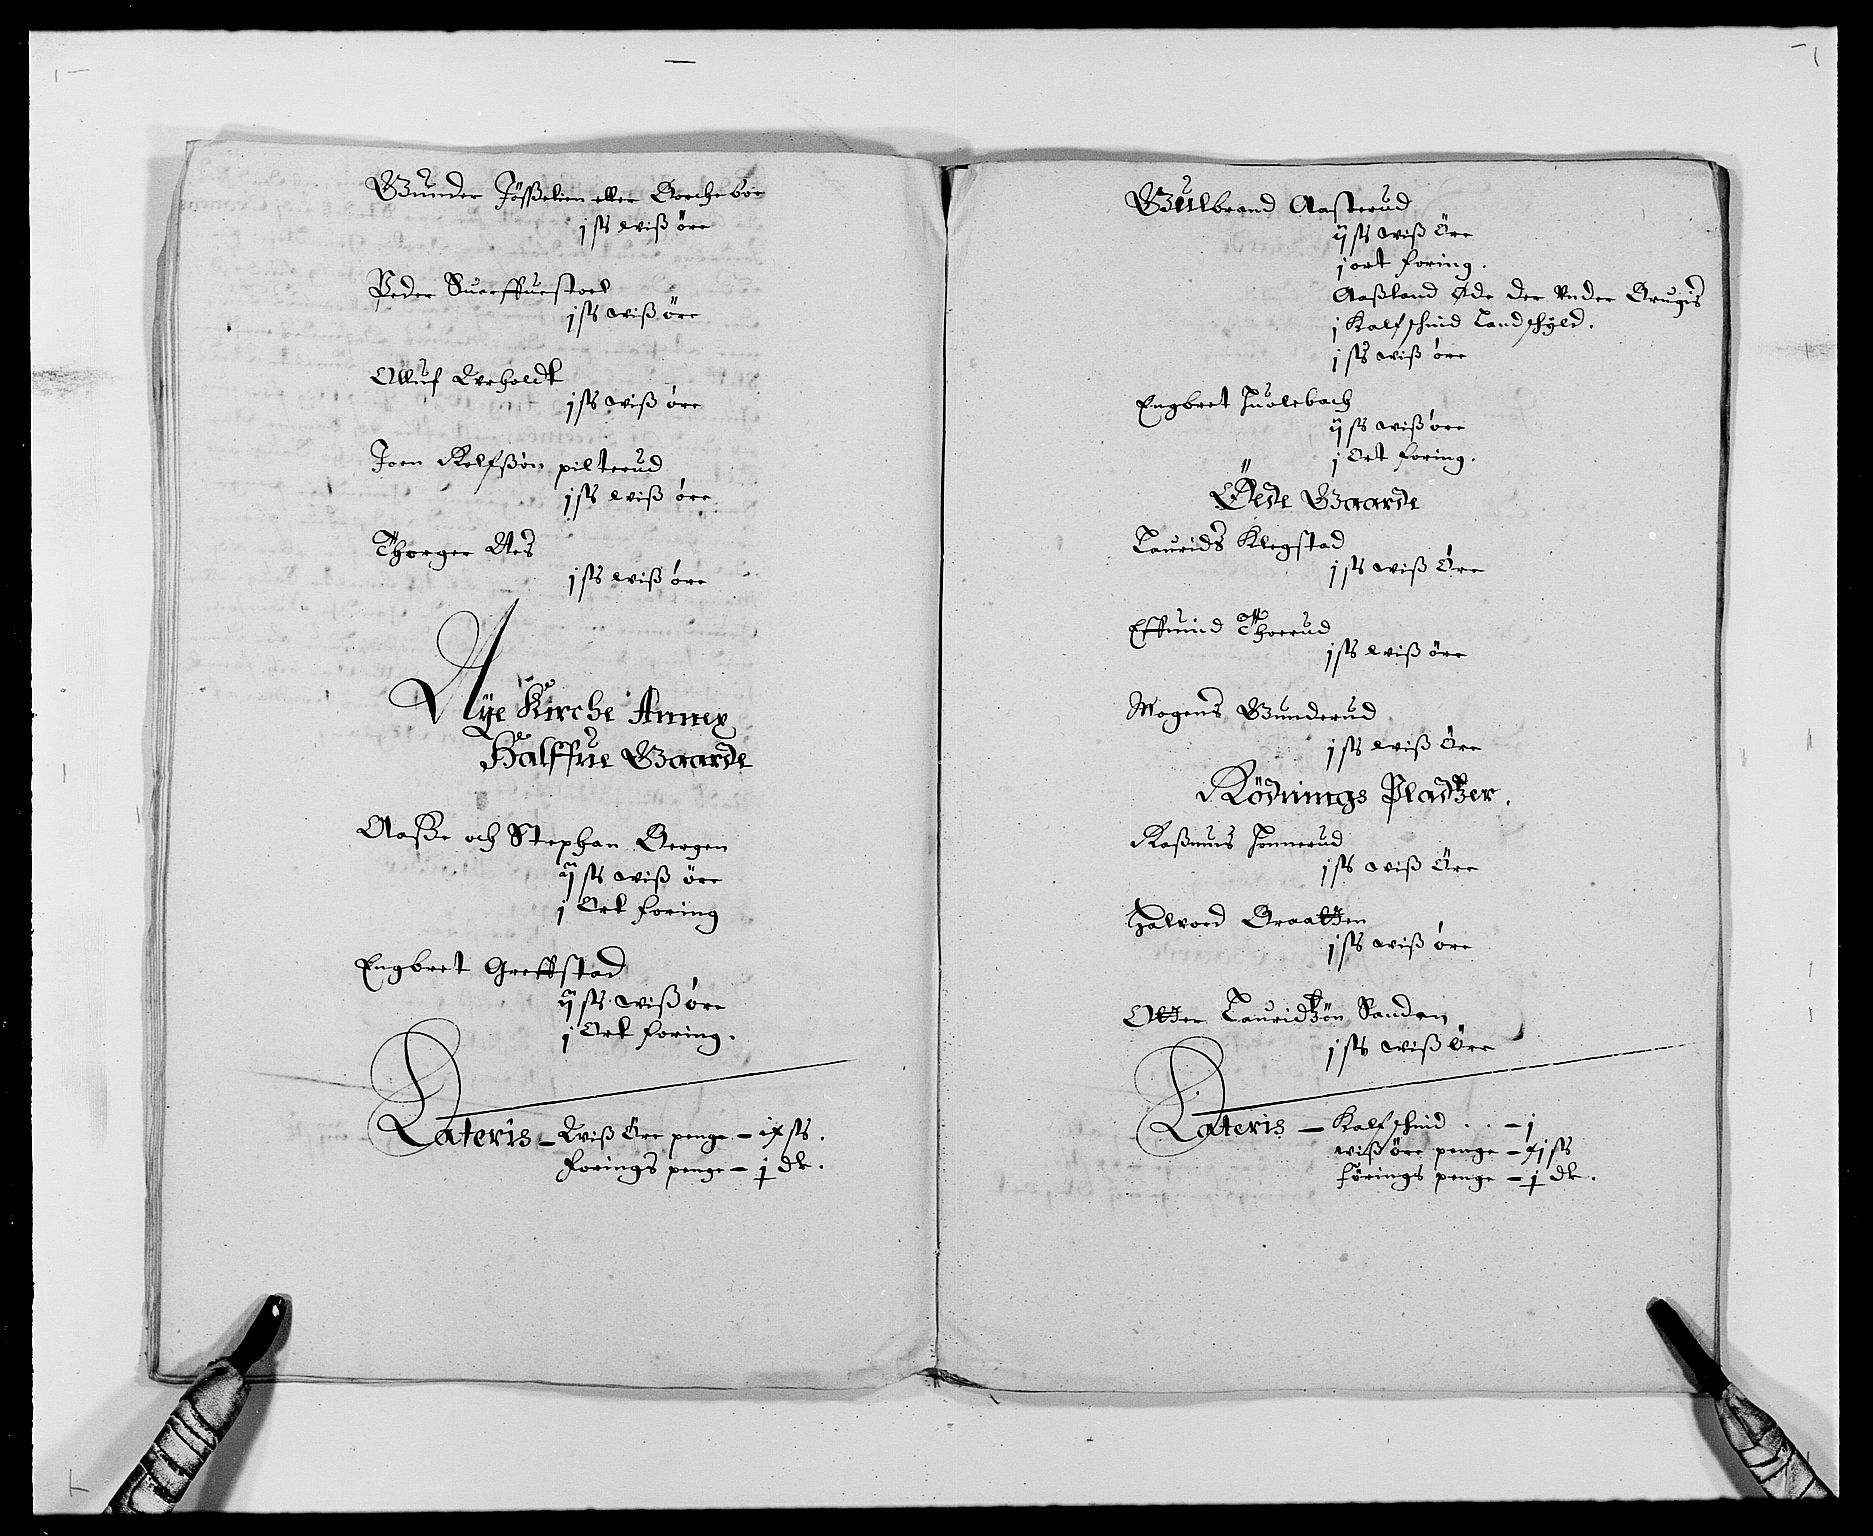 Gunder Jösßelien eller Borchebor
j ſs wiß öre
Peder Suarffuestoel
j ſs wiß öre
Olluf Lverholdt
j ſs wiß öre
Joen Rolfßön pilterud
j ſs wiß öre
Thorger Aes
j ſs wiß öre
Nÿe Kirche Annex
Halffue Gaarde
Aaße och Stephan Bergen
ij ſs wiß öre
j Ort foring
Engbret Greffstad
ij ſs wiß öre
j Ort foring.
Lateris – Wiß Öre penge – ix ſs.
forings penge – j dr.
Gulbrand Aasterud
ij ſs wiß Öre
j ort foring.
Aaßland Øde der under Brugis
j Kalfschind Landschyld.
j ſs wiß öre
Engbret Huolebach
ij ſs wiß öre
j Ort foring.
Öede Gaarde
Laurids Klegstad
j ſs wiß Öre
Effuind Thorrud
j ſs wiß öre
Mogens Gunderud
j ſs wiß Öre
Rödnings Pladtzer.
Raßmus Honnerud
j ſs wiß Öre
Halvord Braatten
j ſs wiß öre
Otter Lauridtzön Sanden
j ſs wiß Öre
Lateris – Kalfschind . . – j
wiß öre penge – xj ſs
förings penge – j dr.